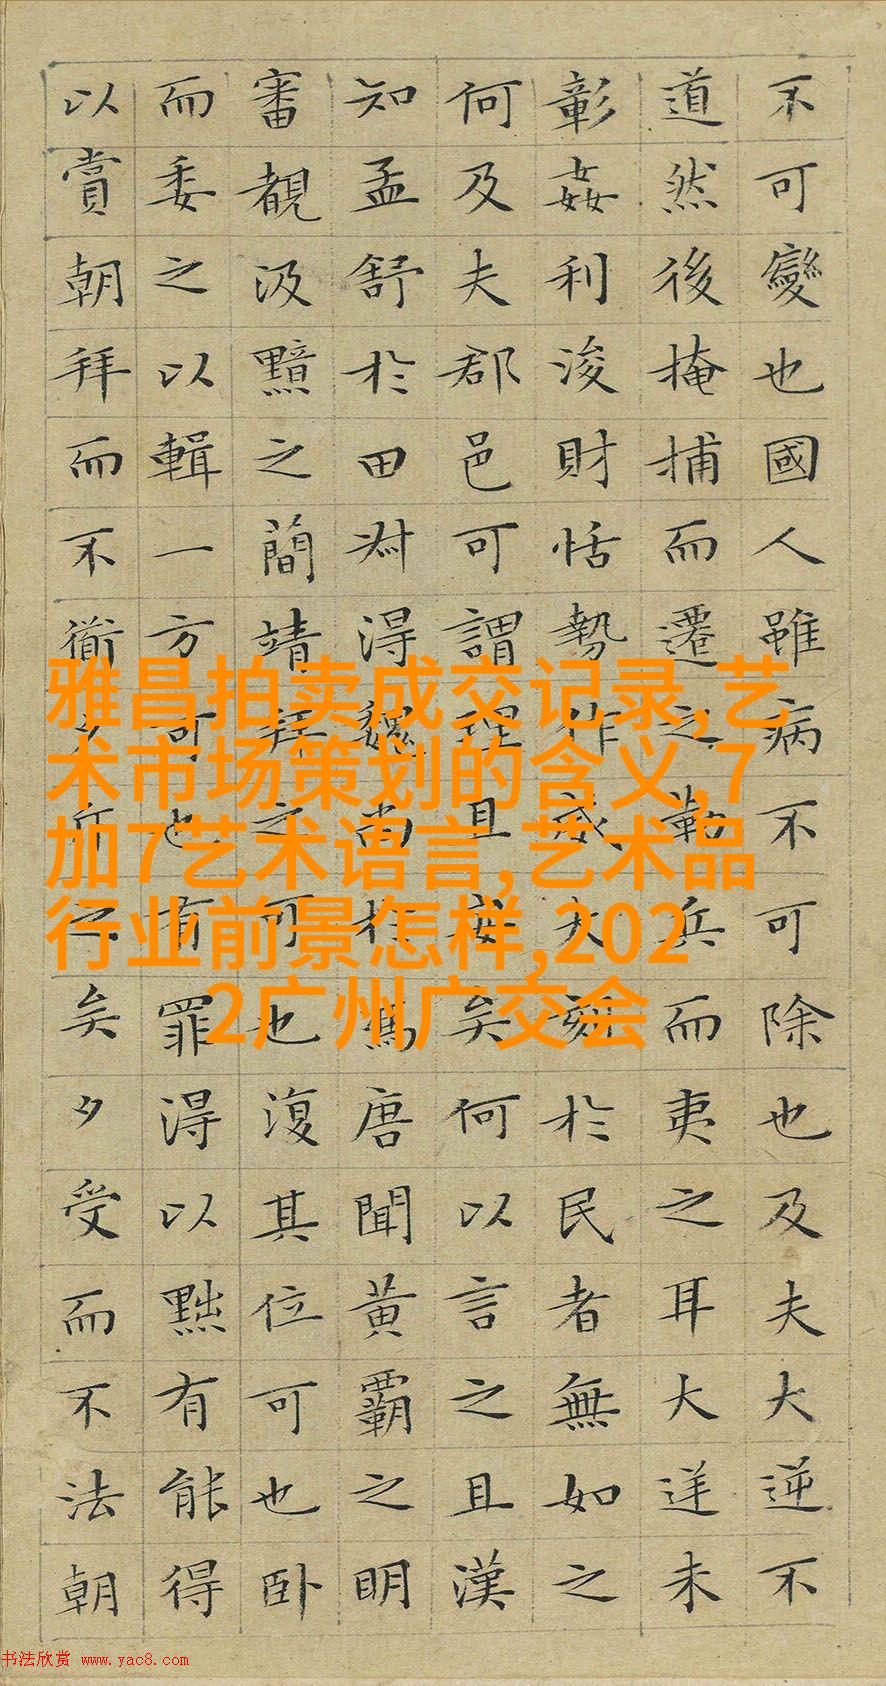 不可變也國人雖病不可除也及夫大逆不
道然後掩捕而遷之勒兵而夷之耳大逆未
彰姦利浚財恬勢作威大刻於民者無如之
何及夫郡邑可謂理且安矣何以言之且漢
知孟舒於田叔得魏尚於馮唐聞黃霸之明
審覩汲黯之簡靖拜之可也復其位可也臥
而委之以輯一方可也有罪得以黜有能得
以賞朝拜而不衜夕斥之矣夕受而不法朝
雅昌拍卖成交记录,艺
术市场策划的含义,7
加7艺术语言,艺术品
行业前景怎样,202
2广州广交会
书法欣赏 www.yac8.com